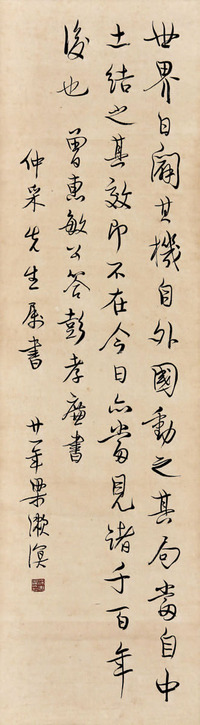 世界日闢其機自外國動之其局當自中
土結之其效即不在今日亦當見諸千百年
後也　曾惠敏公答彭孝廉書
仲采先生属書
廿一年 梁漱溟